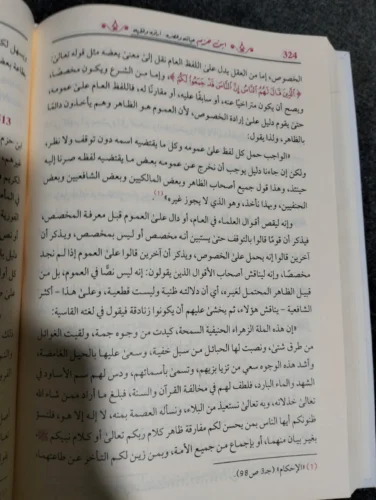 324
ابن حزم حياته وعصره، آراؤه وفقهه
الخصوص، إما من العقل يدل على اللفظ العام نقل إلى معنى بعضه مثل قوله تعالى:
﴿الَّذِينَ قَالَ لَهُمُ النَّاسُ إِنَّ النَّاسَ قَدْ جَمَعُوا لَكُمْ﴾، وإما من الشرع ويكون مخصصًا،
ويصح أن يكون متراخيًا عنه، أو سابقًا عليه، أو مقارنًا له، فاللفظ العام على عمومه،
حتى يقوم دليل على إرادة الخصوص، لأن العموم هو الظاهر وهم يأخذون دائمًا
بالظاهر، ولذا يقول:
«الواجب حمل كل لفظ على عمومه وكل ما يقتضيه اسمه دون توقف ولا نظر،
ولكن إن جاءنا دليل يوجب أن نخرج عن عمومه بعض ما يقتضيه لفظه صرنا إليه
حينئذ، وهذا قول جميع أصحاب الظاهر وبعض المالكيين وبعض الشافعيين وبعض
الحنفيين، وبهذا نأخذ، وهو الذي لا يجوز غيره»(١).
وإنه ليقص أقوال العلماء في العام، أو دال على العموم قبل معرفة المخصص،
فيذكر أن قومًا قالوا بالتوقف حتى يستبين أنه مخصص أو ليس بمخصص، ويذكر أن
آخرين قالوا إنه يحمل على الخصوص، ويذكر أن آخرين قالوا على العموم إذا لم نجد
مخصصًا، وإنه ليناقش أصحاب الأقوال الذين يقولون: إنه ليس نصًّا في العموم، بل من
قبيل الظاهر المحتمل لغيره، أي أن دلالته ظنية وليست قطعية، وعلى هذا - أكثر
الشافعية - يناقش هؤلاء، ثم يخشى عليهم أن يكونوا زنادقة فيقول في لغته القاسية:
«إن هذه الملة الزهراء الحنيفية السمحة، كيدت من وجوه جمة، ولقيت الغوائل
من طرق شتى، ونصبت لها الحبائل من سبل خفية، وسعى عليها بالحيل الغامضة،
وأشد هذه الوجوه سعي من تزيا بزيهم، وتسمى بأسمائهم، ودس لهم سم الأساود في
الشهد والماء البارد، فلطف لهم في مخالفة القرآن والسنة، فبلغ ما أراد ممن شاء الله
تعالى خذلانه، وبه تعالى نستعيذ من البلاء، ونسأله العصمة بمنه، لا إله إلا هو
ظنونكم أيها الناس بمن يحسن لكم مفارقة ظاهر كلام ربكم تعالى أو كلام نبيكم ﷺ
بغير بيان منهما، أو بإجماع من جميع الأمة، وبمن زين لكم التأخر عن طاعتهما
(١) «الإحكام» (جـ3 ص 98).